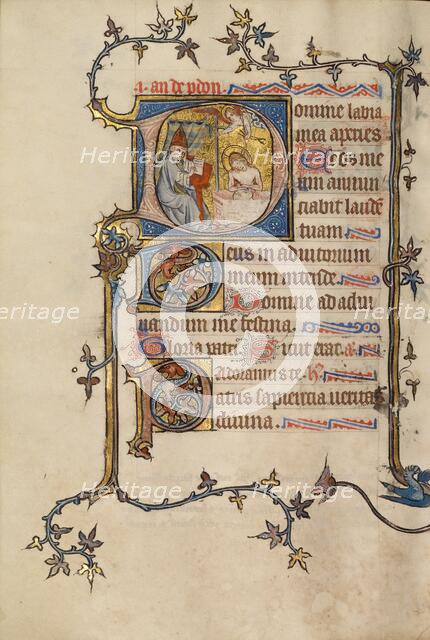 I. an de pdon.
Domine labia
mea apries
Et os me
um annun
ciabit laude
tuam
Deus in adiutorium
meum intende.
Domine ad adiu
uandum me festina.
Gloria patri. Sicut erat.
Adoramus te.
Patris sapiencia ueritas
diuina.
Heritage
Heritage
Heritage
Heritage
Heritage
Heritage
Heritage
Heritage